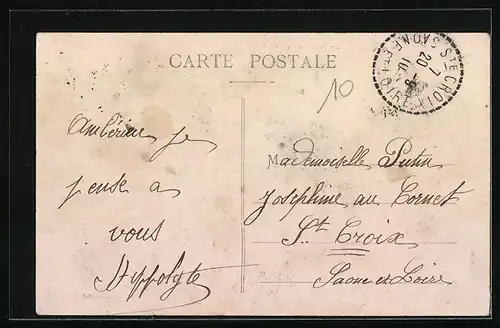 CARTE POSTALE
10
STE CROIX
SAONE-ET-LOIRE
20
7
10
Ambérieu je
pense a
vous
Hyppolyte
Mademoiselle Putin
Joséphine au Cornet
St. Croix
Saone et Loire